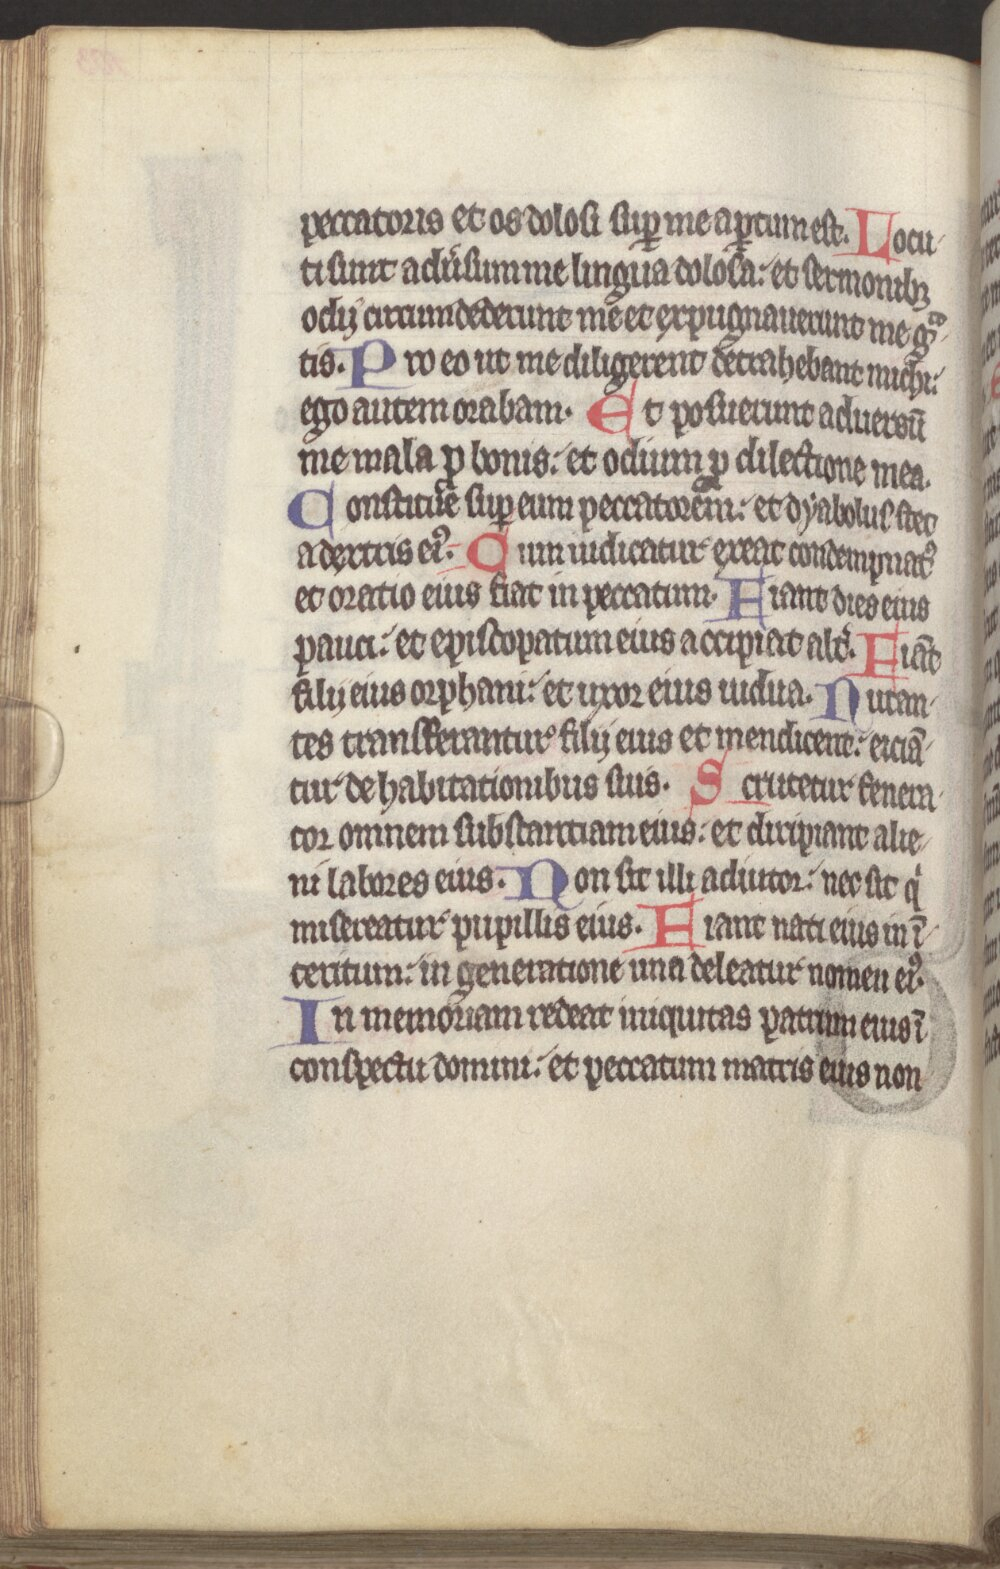 peccatoris et os dolosi sup̱ me ap̱tum est. Locu-
ti sunt adũsum me lingua dolosa: et sermonibꝫ
odij circumdederunt me et expugnauerunt me gᵃ-
tis. Pro eo ut me diligerent detrahebant michi:
ego autem orabam. Et posuerunt aduersū
me mala ꝓ bonis: et odium ꝓ dilectione mea.
Constitue suꝑ eum peccatorem: et dyabolus stet
a dextris eiꝰ. Cum iudicatur exeat condempnatꝰ
et oratio eius fiat in peccatum. Fiant dies eius
pauci: et episcopatum eius accipiat alt̃. Fiāt
filij eius orphani: et uxor eius uidua. Nutan-
tes transferantur filij eius et mendicent: eiciā-
tur de habitationibus suis. Scrutetur fenera-
tor omnem substantiam eius: et diripiant alie-
ni labores eius. Non sit illi adiutor: nec sit qͥ
misereatur pupillis eius. Fiant nati eius in ī-
teritum: in generatione una deleatur nomen eiꝰ.
In memoriam redeat iniquitas patrum eius ī
conspectu domini: et peccatum matris eius non